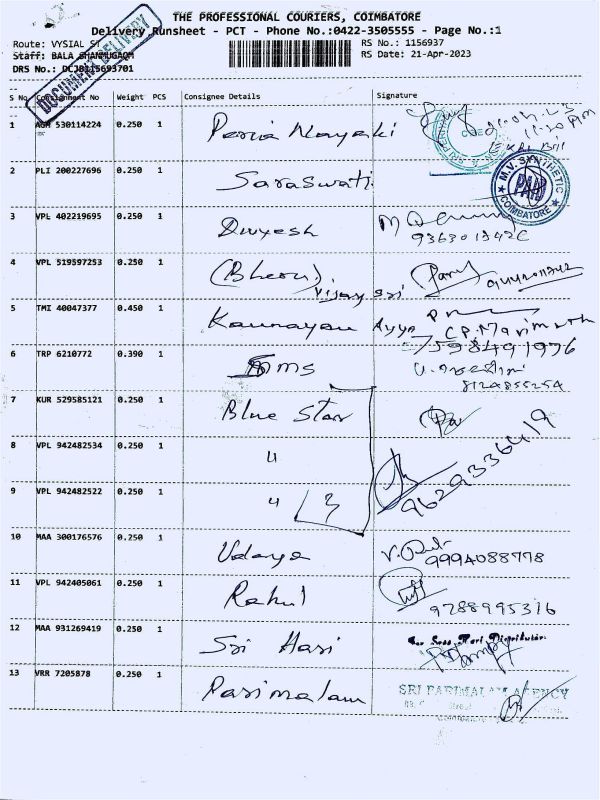 THE PROFESSIONAL COURIERS, COIMBATORE
Delivery Runsheet - PCT - Phone No.:0422-3505555 - Page No.:1
Route: VYSIAL ST
RS No.: 1156937
Staff: BALA SHANMUGAM
RS Date: 21-Apr-2023
DRS No.: DCJB115693701
DOCUMENT DELIVERY
S No Consignment No Weight PCS Consignee Details Signature
1 AGM 530114224 0.250 1 Peria Nayaki
2 PLI 200227696 0.250 1 Saraswati
M.V. SYNTHETIC
PAID
COIMBATORE
3 VPL 402219695 0.250 1 Divyesh
4 VPL 519597253 0.250 1 (Bheru) Vijay Sri
5 TMI 40047377 0.450 1 Karunayau Ayya C.P. Marimuth
7598491976
6 TRP 6210772 0.390 1 mms
8124855254
7 KUR 529585121 0.250 1 Blue Star
8 VPL 942482534 0.250 1 "
9629336419
9 VPL 942482522 0.250 1 " 3
10 MAA 300176576 0.250 1 Udaya
9994088778
11 VPL 942405061 0.250 1 Rahul
9788995316
12 MAA 931269419 0.250 1 Sri Hari
For Sree Hari Distributor
13 VRR 7205878 0.250 1 Parimalam
SRI PARIMALAM AGENCY